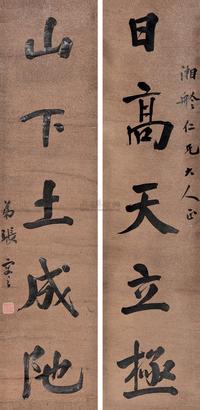 湘舲仁兄大人正
日高天立極
山下土成地
弟張謇